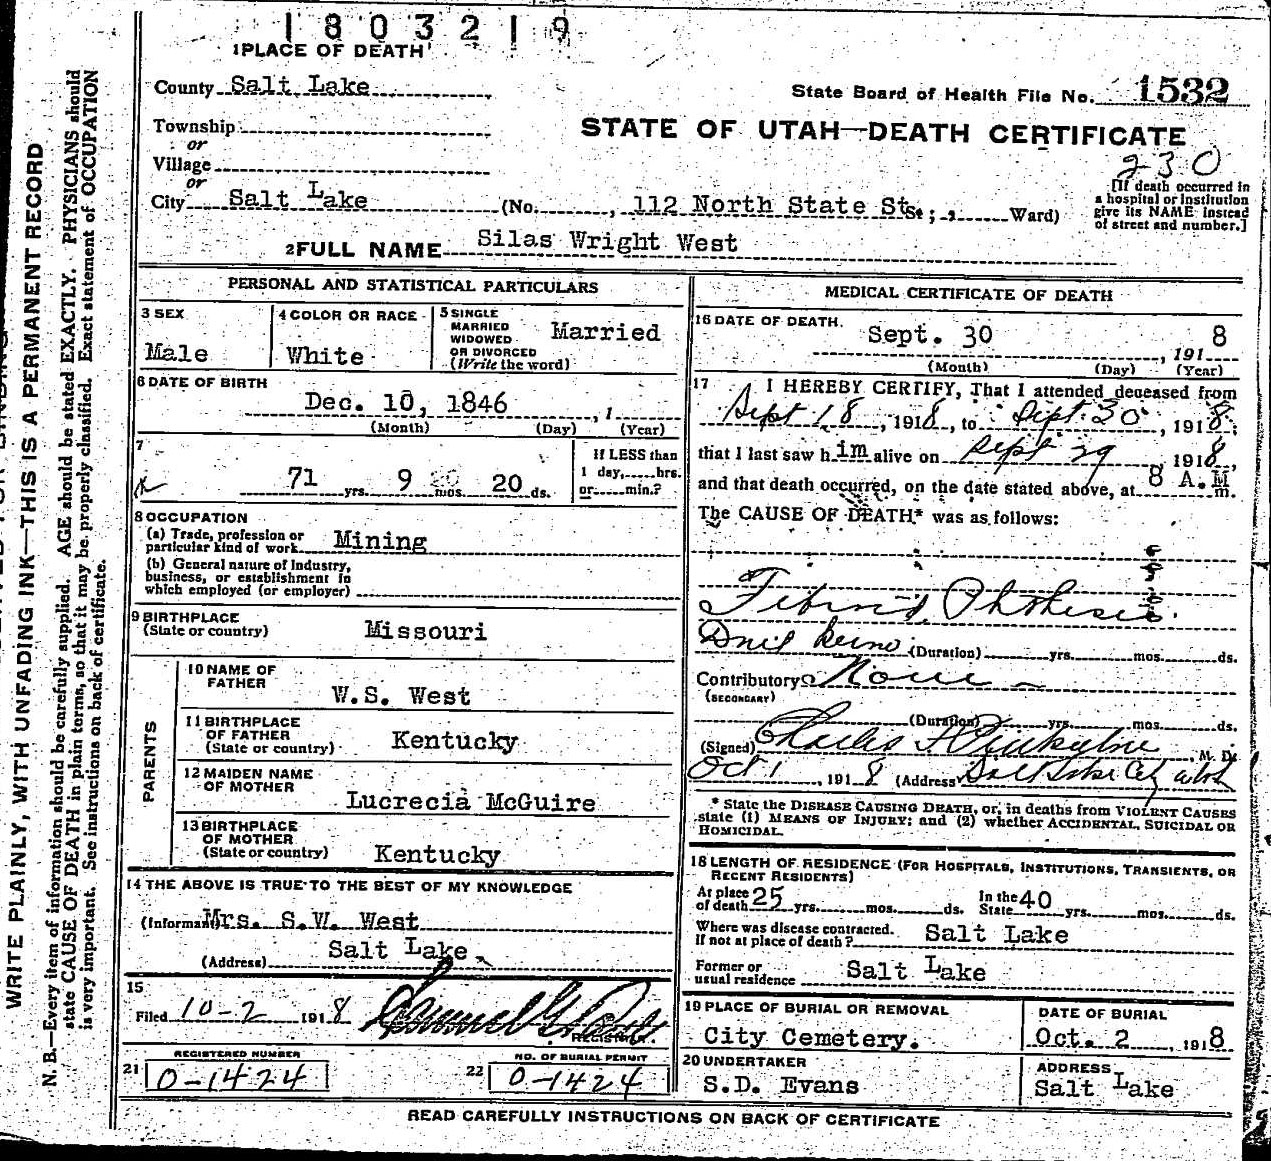 1803219
1 PLACE OF DEATH
County Salt Lake
State Board of Health File No. 1532
Township
or
Village
or
STATE OF UTAH—DEATH CERTIFICATE
230
City Salt Lake (No. , 112 North State St. ; , Ward)
[If death occurred in
a hospital or Institution
give its NAME instead
of street and number.]
2 FULL NAME Silas Wright West
PERSONAL AND STATISTICAL PARTICULARS
3 SEX
Male
4 COLOR OR RACE
White
5 SINGLE
MARRIED
WIDOWED
OR DIVORCED
(Write the word)
Married
6 DATE OF BIRTH
Dec. 10, 1846 , 1
(Month) (Day) (Year)
7
71 yrs. 9 mos 20 ds.
If LESS than
1 day, hrs.
or min.?
8 OCCUPATION
(a) Trade, profession or
particular kind of work Mining
(b) General nature of Industry,
business, or establishment in
which employed (or employer)
9 BIRTHPLACE
(State or country) Missouri
PARENTS
10 NAME OF
FATHER
W.S. West
11 BIRTHPLACE
OF FATHER
(State or country) Kentucky
12 MAIDEN NAME
OF MOTHER
Lucrecia McGuire
13 BIRTHPLACE
OF MOTHER
(State or country) Kentucky
14 THE ABOVE IS TRUE TO THE BEST OF MY KNOWLEDGE
(Informant) Mrs. S.W. West
(Address) Salt Lake
15
Filed 10-2 , 1918
REGISTRAR.
REGISTERED NUMBER
21 0-1424
NO. OF BURIAL PERMIT
22 0-1424
MEDICAL CERTIFICATE OF DEATH
16 DATE OF DEATH.
Sept. 30 , 1918
(Month) (Day) (Year)
17 I HEREBY CERTIFY, That I attended deceased from
Sept 18, 1918, to Sept. 30, 1918,
that I last saw him alive on Sept 29 1918,
and that death occurred, on the date stated above, at 8 A.M m.
The CAUSE OF DEATH* was as follows:
(Duration) yrs. mos. ds.
Contributory None
(SECONDARY)
(Duration) yrs. mos. ds.
(Signed) Charles , M. D.
Oct 1, 1918 (Address) Salt Lake City Utah
* State the DISEASE CAUSING DEATH, or, in deaths from VIOLENT CAUSES
state (1) MEANS OF INJURY; and (2) whether ACCIDENTAL, SUICIDAL OR
HOMICIDAL.
18 LENGTH OF RESIDENCE (FOR HOSPITALS, INSTITUTIONS, TRANSIENTS, OR
RECENT RESIDENTS)
At place
of death 25 yrs. mos. ds.
In the
State 40 yrs. mos. ds.
Where was disease contracted.
If not at place of death? Salt Lake
Former or
usual residence Salt Lake
19 PLACE OF BURIAL OR REMOVAL
City Cemetery.
DATE OF BURIAL
Oct. 2 , 1918
20 UNDERTAKER
S.D. Evans
ADDRESS
Salt Lake
READ CAREFULLY INSTRUCTIONS ON BACK OF CERTIFICATE
WRITE PLAINLY, WITH UNFADING INK—THIS IS A PERMANENT RECORD
N. B.—Every item of information should be carefully supplied. AGE should be stated EXACTLY. PHYSICIANS should
state CAUSE OF DEATH in plain terms, so that it may be properly classified. Exact statement of OCCUPATION
is very important. See instructions on back of certificate.